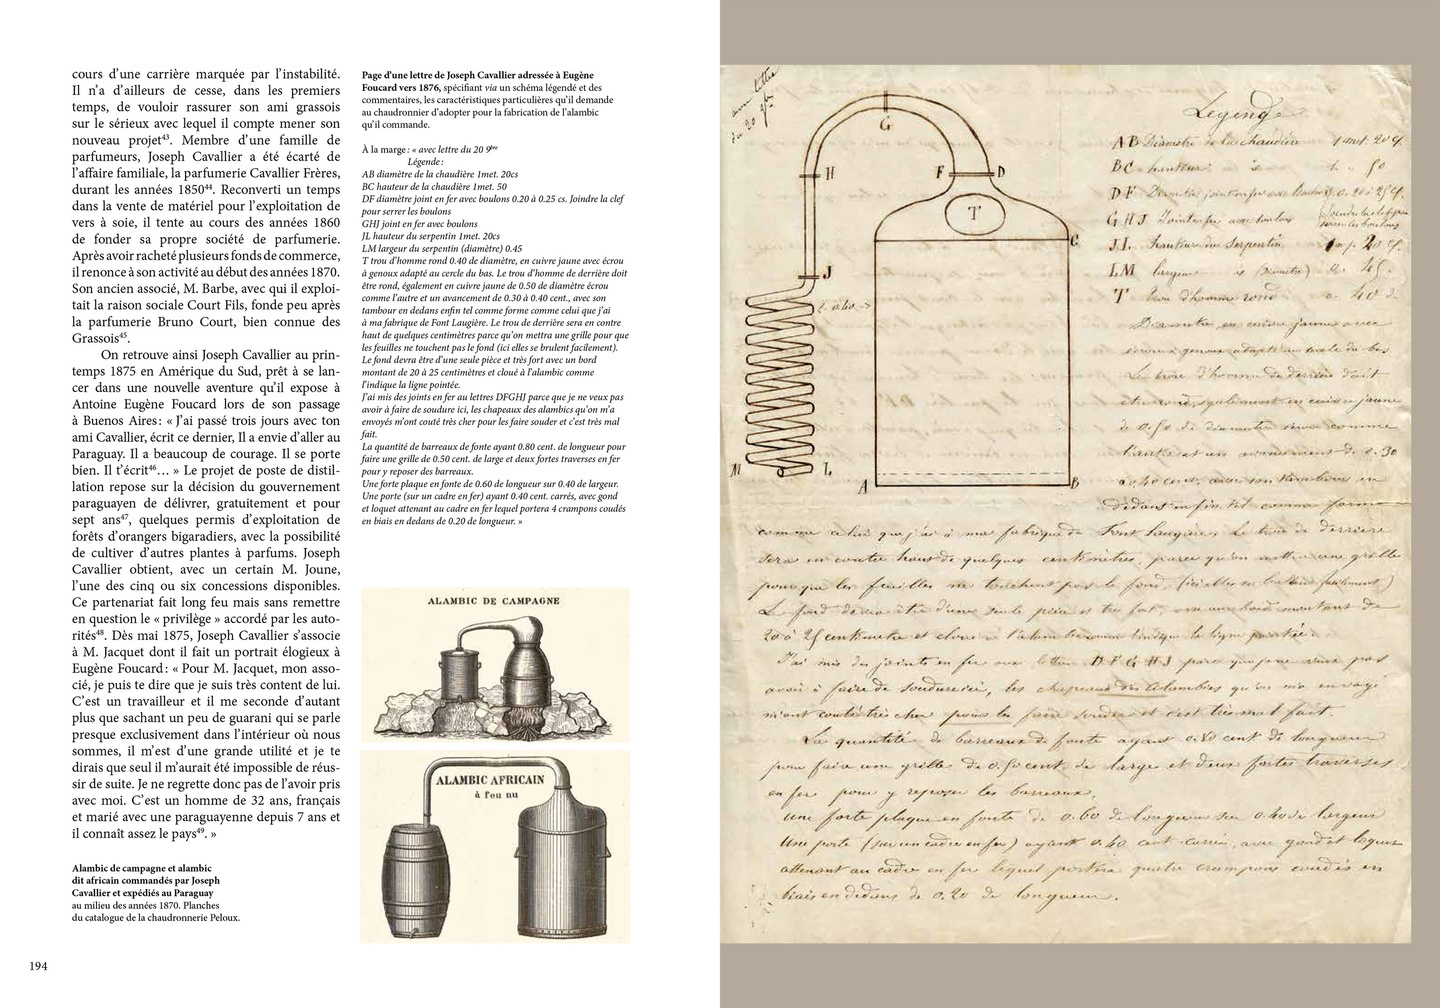 cours d'une carrière marquée par l'instabilité.
Il n'a d'ailleurs de cesse, dans les premiers
temps, de vouloir rassurer son ami grassois
sur le sérieux avec lequel il compte mener son
nouveau projet⁴³. Membre d'une famille de
parfumeurs, Joseph Cavallier a été écarté de
l'affaire familiale, la parfumerie Cavallier Frères,
durant les années 1850⁴⁴. Reconverti un temps
dans la vente de matériel pour l'exploitation de
vers à soie, il tente au cours des années 1860
de fonder sa propre société de parfumerie.
Après avoir racheté plusieurs fonds de commerce,
il renonce à son activité au début des années 1870.
Son ancien associé, M. Barbe, avec qui il exploi-
tait la raison sociale Court Fils, fonde peu après
la parfumerie Bruno Court, bien connue des
Grassois⁴⁵.
On retrouve ainsi Joseph Cavallier au prin-
temps 1875 en Amérique du Sud, prêt à se lan-
cer dans une nouvelle aventure qu'il expose à
Antoine Eugène Foucard lors de son passage
à Buenos Aires : « J'ai passé trois jours avec ton
ami Cavallier, écrit ce dernier, Il a envie d'aller au
Paraguay. Il a beaucoup de courage. Il se porte
bien. Il t'écrit⁴⁶… » Le projet de poste de distil-
lation repose sur la décision du gouvernement
paraguayen de délivrer, gratuitement et pour
sept ans⁴⁷, quelques permis d'exploitation de
forêts d'orangers bigaradiers, avec la possibilité
de cultiver d'autres plantes à parfums. Joseph
Cavallier obtient, avec un certain M. Joune,
l'une des cinq ou six concessions disponibles.
Ce partenariat fait long feu mais sans remettre
en question le « privilège » accordé par les auto-
rités⁴⁸. Dès mai 1875, Joseph Cavallier s'associe
à M. Jacquet dont il fait un portrait élogieux à
Eugène Foucard : « Pour M. Jacquet, mon asso-
cié, je puis te dire que je suis très content de lui.
C'est un travailleur et il me seconde d'autant
plus que sachant un peu de guarani qui se parle
presque exclusivement dans l'intérieur où nous
sommes, il m'est d'une grande utilité et je te
dirais que seul il m'aurait été impossible de réus-
sir de suite. Je ne regrette donc pas de l'avoir pris
avec moi. C'est un homme de 32 ans, français
et marié avec une paraguayenne depuis 7 ans et
il connaît assez le pays⁴⁹. »
Alambic de campagne et alambic
dit africain commandés par Joseph
Cavallier et expédiés au Paraguay
au milieu des années 1870. Planches
du catalogue de la chaudronnerie Peloux.
194
Page d'une lettre de Joseph Cavallier adressée à Eugène
Foucard vers 1876, spécifiant via un schéma légendé et des
commentaires, les caractéristiques particulières qu'il demande
au chaudronnier d'adopter pour la fabrication de l'alambic
qu'il commande.
À la marge : « avec lettre du 20 9bre
Légende :
AB diamètre de la chaudière 1met. 20cs
BC hauteur de la chaudière 1met. 50
DF diamètre joint en fer avec boulons 0.20 à 0.25 cs. Joindre la clef
pour serrer les boulons
GHJ joint en fer avec boulons
JL hauteur du serpentin 1met. 20cs
LM largeur du serpentin (diamètre) 0.45
T trou d'homme rond 0.40 de diamètre, en cuivre jaune avec écrou
à genoux adapté au cercle du bas. Le trou d'homme de derrière doit
être rond, également en cuivre jaune de 0.50 de diamètre écrou
comme l'autre et un avancement de 0.30 à 0.40 cent., avec son
tambour en dedans enfin tel comme forme comme celui que j'ai
à ma fabrique de Font Laugière. Le trou de derrière sera en contre
haut de quelques centimètres parce qu'on mettra une grille pour que
les feuilles ne touchent pas le fond (ici elles se brulent facilement).
Le fond devra être d'une seule pièce et très fort avec un bord
montant de 20 à 25 centimètres et cloué à l'alambic comme
l'indique la ligne pointée.
J'ai mis des joints en fer au lettres DFGHJ parce que je ne veux pas
avoir à faire de soudure ici, les chapeaux des alambics qu'on m'a
envoyés m'ont couté très cher pour les faire souder et c'est très mal
fait.
La quantité de barreaux de fonte ayant 0.80 cent. de longueur pour
faire une grille de 0.50 cent. de large et deux fortes traverses en fer
pour y reposer des barreaux.
Une forte plaque en fonte de 0.60 de longueur sur 0.40 de largeur.
Une porte (sur un cadre en fer) ayant 0.40 cent. carrés, avec gond
et loquet attenant au cadre en fer lequel portera 4 crampons coudés
en biais en dedans de 0.20 de longueur. »
ALAMBIC DE CAMPAGNE
ALAMBIC AFRICAIN
à feu nu
avec lettre
du 20 9bre
G
H
F
D
T
C
J
0.40
M
L
A
B
Legende
AB Diametre de la chaudière 1 met. 20 c.
BC hauteur 1. " 50
DF Diametre joint en fer avec boulons 0.20 à 25 c.
GHJ Joint en fer avec boulons Joindre la clef pour serrer les boulons
JL. hauteur du Serpentin 1 m. 20 c.
LM largeur (Diametre) 0. 45.
T trou d'homme rond 0. 40 de
Diametre en cuivre jaune avec
écrou a genoux adapté au cercle du bas
Le trou d'homme de derrière doit
etre rond, egalement en cuivre jaune
de 0.50 de diametre écrou comme
l'autre et un avancement de 0.30
à 0.40 cent, avec son tambour en
dedans enfin tel comme forme
comme celui que j'ai à ma fabrique de Font Laugière. Le trou de derrière
sera en contre haut de quelques centimètres, parce qu'on mettra une grille
pour que les feuilles ne touchent pas le fond (ici elles se brulent facilement)
Le fond devra être d'une seule pièce et tres fort, avec un bord montant de
20 à 25 centimetres et cloué a l'alambic comme l'indique la ligne pointée.
J'ai mis des joints en fer aux lettres DFGHJ parce que je ne veux pas
avoir à faire de soudure ici, les chapeaux des alambics qu'on m'a envoyé
m'ont couté très cher pour les faire souder et c'est très mal fait.
La quantité de barreaux de fonte ayant 0.80 cent de longueur
pour faire une grille de 0.50 cent. de large et deux fortes traverses
en fer pour y reposer les barreaux.
Une forte plaque en fonte de 0.60 de longueur sur 0.40 de largeur
Une porte (sur un cadre en fer) ayant 0.40 cent carrés, avec gond et loquet
attenant au cadre en fer lequel portera quatre crampons coudés en
biais en dedans de 0.20 de longueur.